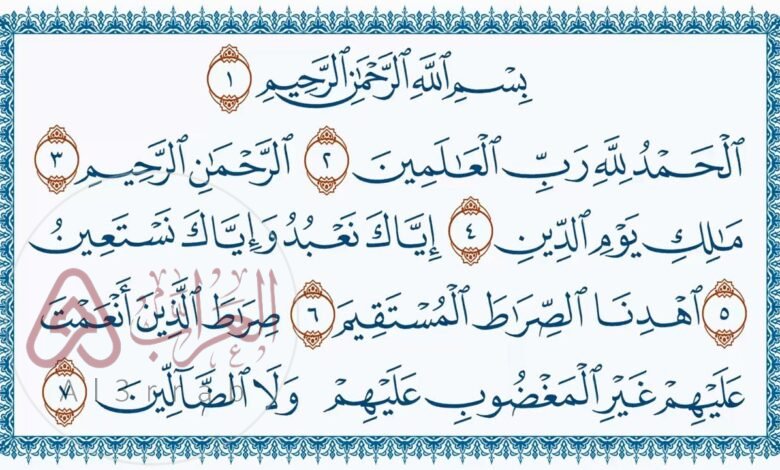 بِسْمِ ٱللَّهِ ٱلرَّحْمَٰنِ ٱلرَّحِيمِ ١
ٱلْحَمْدُ لِلَّهِ رَبِّ ٱلْعَٰلَمِينَ ٢ ٱلرَّحْمَٰنِ ٱلرَّحِيمِ ٣
مَٰلِكِ يَوْمِ ٱلدِّينِ ٤ إِيَّاكَ نَعْبُدُ وَإِيَّاكَ نَسْتَعِينُ
٥ ٱهْدِنَا ٱلصِّرَٰطَ ٱلْمُسْتَقِيمَ ٦ صِرَٰطَ ٱلَّذِينَ أَنْعَمْتَ
عَلَيْهِمْ غَيْرِ ٱلْمَغْضُوبِ عَلَيْهِمْ وَلَا ٱلضَّآلِّينَ ٧
العراب
Al3rrab